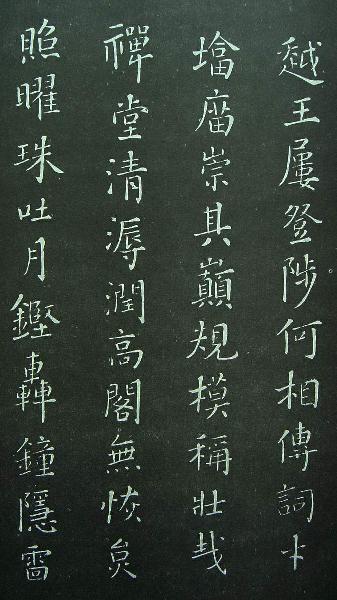 越王屢登陟何相傳詞才
墖庿崇其巔規模稱壯哉
禪堂清溽潤高閣無恢炱
照曜珠吐月鏗轟鐘隱雷